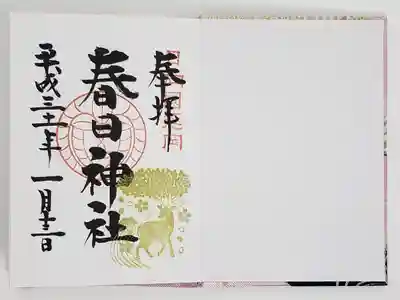 奉拝
春日神社
平成三十一年 一月十三日